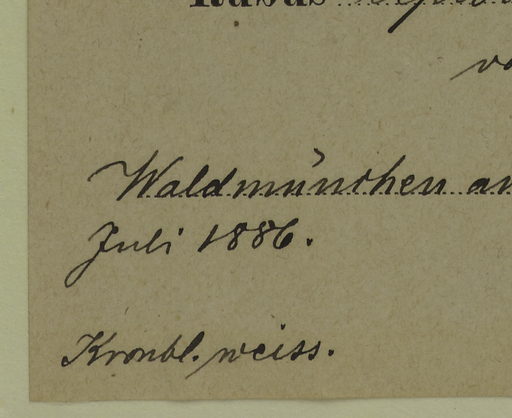 Rubus
Waldmünchen an
Juli 1886.
Kronbl. weiss.